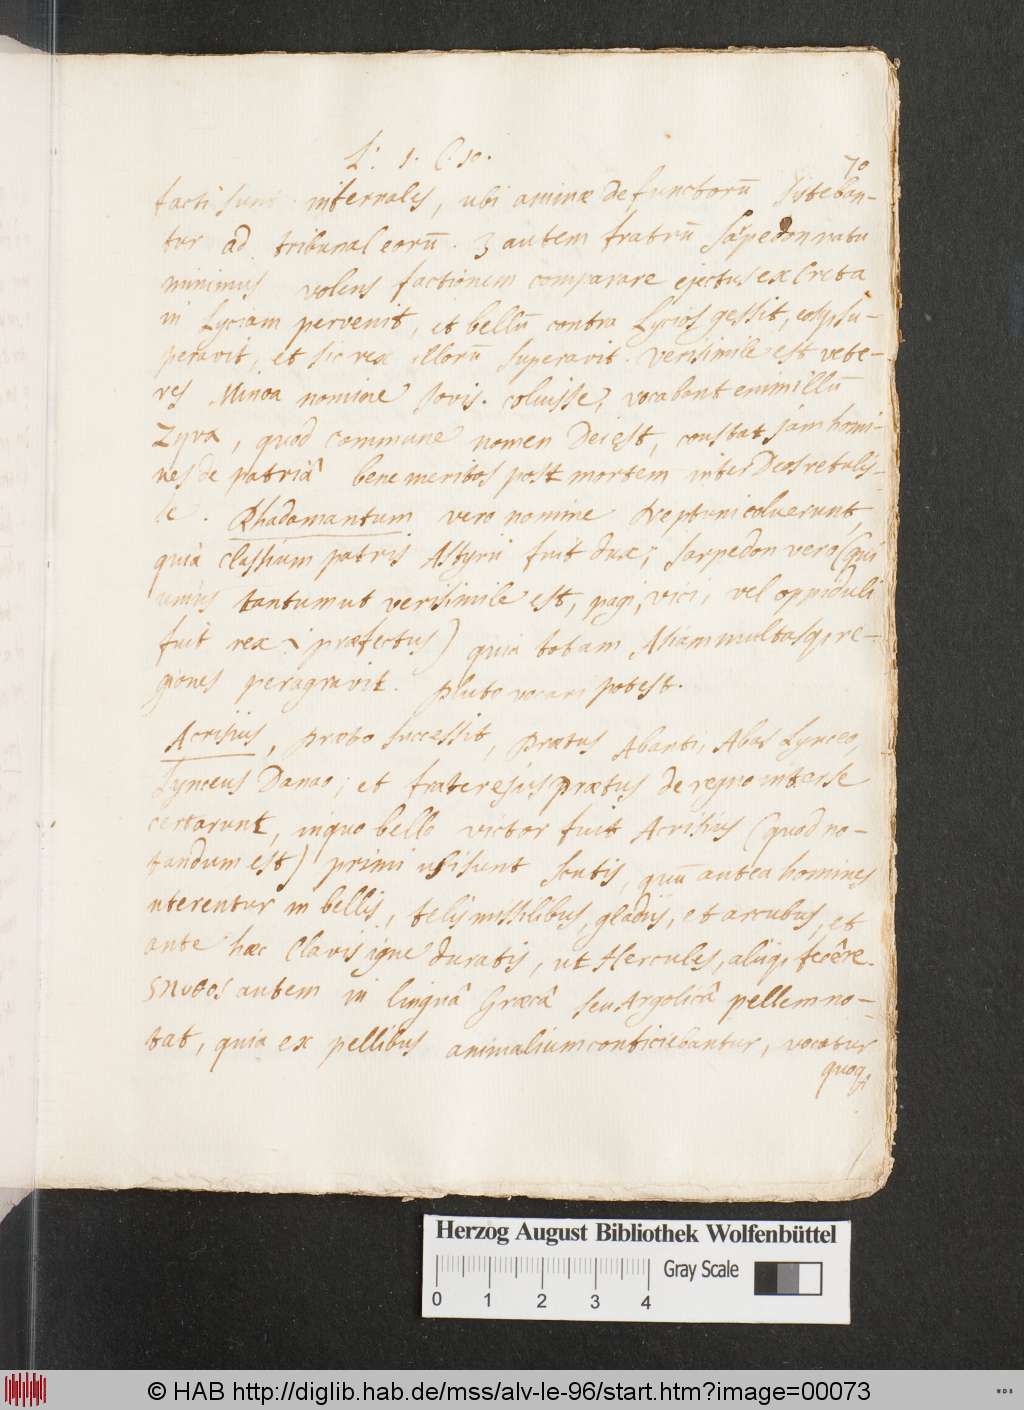 L. 1. C. 10.
70
facti sunt infernales, ubi animæ defunctorū sisteban-
tur ad tribunal eorū. 3 autem fratrū Sarpedon natu
minimus volens factionem comparare ejectus ex Creta
in Lyciam pervenit, et bellū contra Lycios gessit, eosq, su-
peravit, et sic rex illorū superavit. verisimile est vete-
res Minoa nomine Jovis. coluisse, vocabant enim illū
Zyva, quod commune nomen Dei est, constat jam homi-
nes de patriâ bene meritos post mortem inter Deos retulis-
se. Rhadamantum vero nomine Neptuni coluerunt,
quia classium patris Astyrii fuit dux; Sarpedon vero (qui
unius tantum ut verisimile est, pagi, vici, vel oppiduli
fuit rex præfectus) quia totam Asiam multasq, re-
giones peragravit. Pluto vocari potest.
Acrisius, Præto successit, Prætus Abanti, Abas Lynceo,
Lynceus Danao; et frater ejus Prætus de regno inter se
certarunt, in quo bello victor fuit Acrisius (quod no-
tandum est) primi usi sunt scutis, quū antea homines
uterentur in bellis, telis missilibus, gladiis, et arcubus, et
ante hæc Clavis igne duratis, ut Hercules, aliiq, fecêre.
autem in linguâ Græcâ seu Argolicâ pellem no-
tat, quia ex pellibus animalium conficiebantur, vocatur
quoq,
Herzog August Bibliothek Wolfenbüttel
Gray Scale
0 1 2 3 4
© HAB http://diglib.hab.de/mss/alv-le-96/start.htm?image=00073